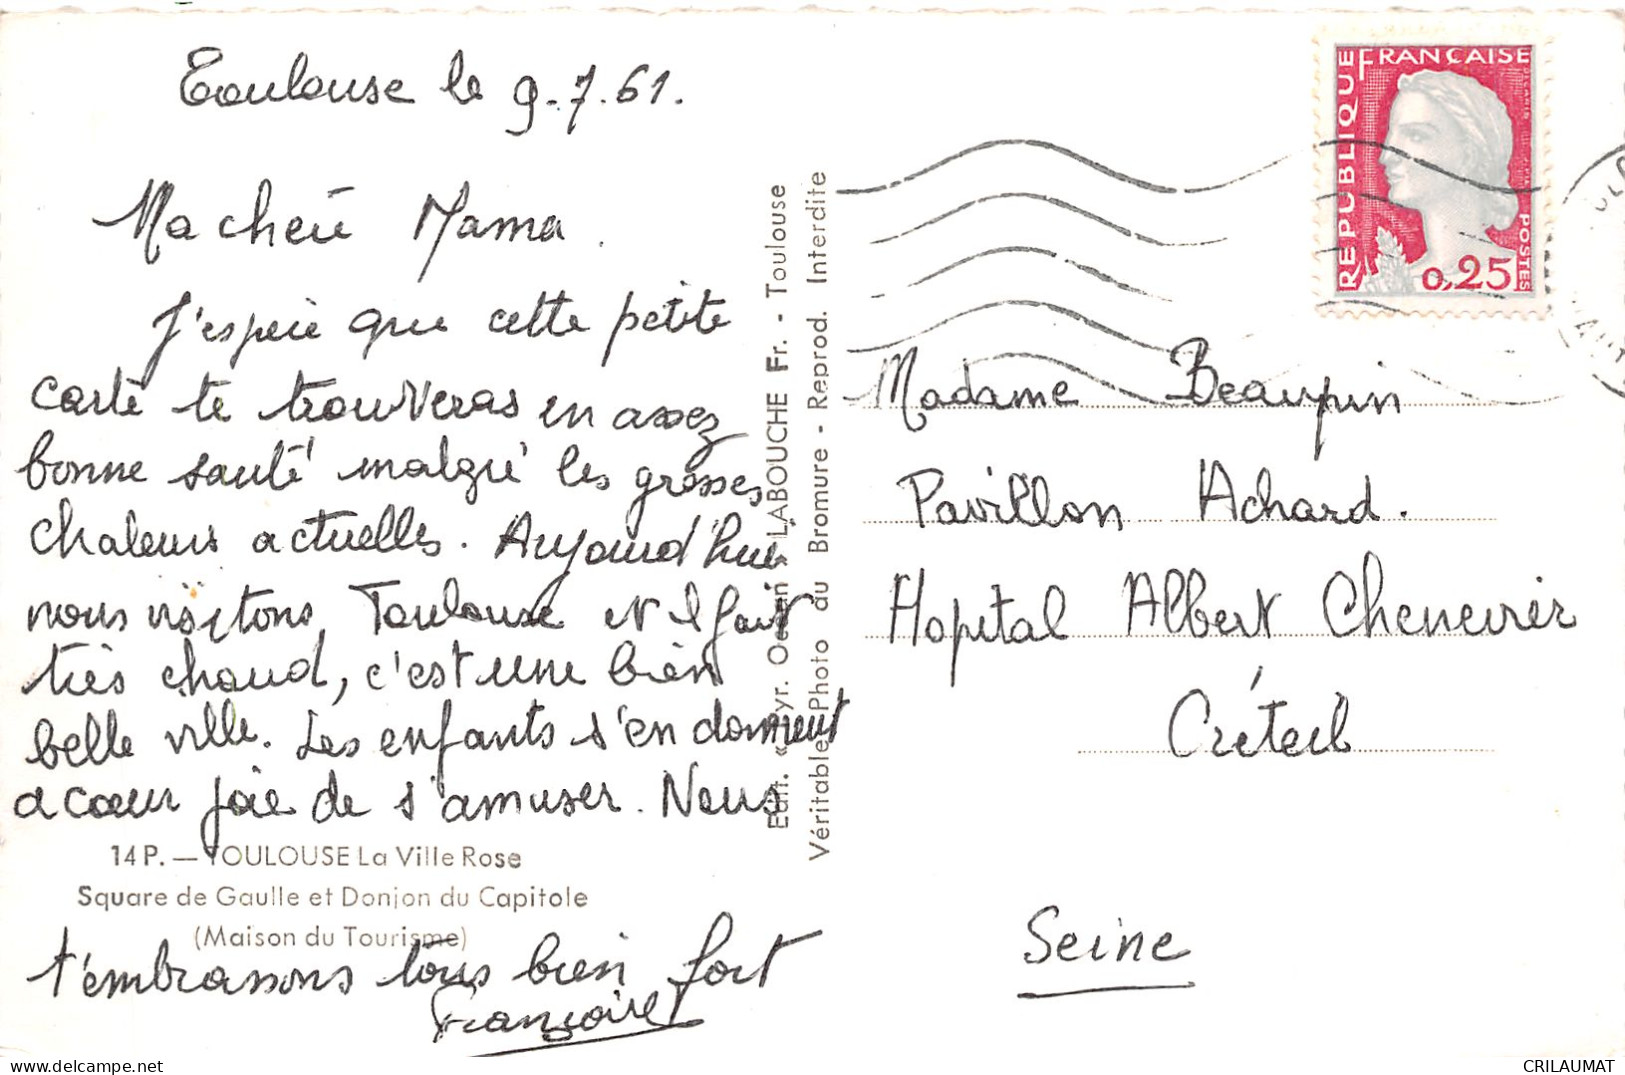 Toulouse le 9.7.61.
Ma chérie Mama.
J'espère que cette petite
carte te trouveras en assez
bonne santé malgré les grosses
chaleurs actuelles. Aujourd'hui
nous visitons Toulouse et il fait
très chaud, c'est une bien
belle ville. Les enfants s'en donnent
a cœur joie de s'amuser. Nous
14 P. — TOULOUSE La Ville Rose
Square de Gaulle et Donjon du Capitole
(Maison du Tourisme)
t'embrassons tous bien fort
Françoise
LABOUCHE Fr. - Toulouse
Véritable Photo au Bromure - Reprod. Interdite
RÉPUBLIQUE FRANÇAISE
0,25
POSTES
Madame Beaupin
Pavillon Achard.
Hopital Albert Chenevrier
Créteil
Seine
CRILAUMAT